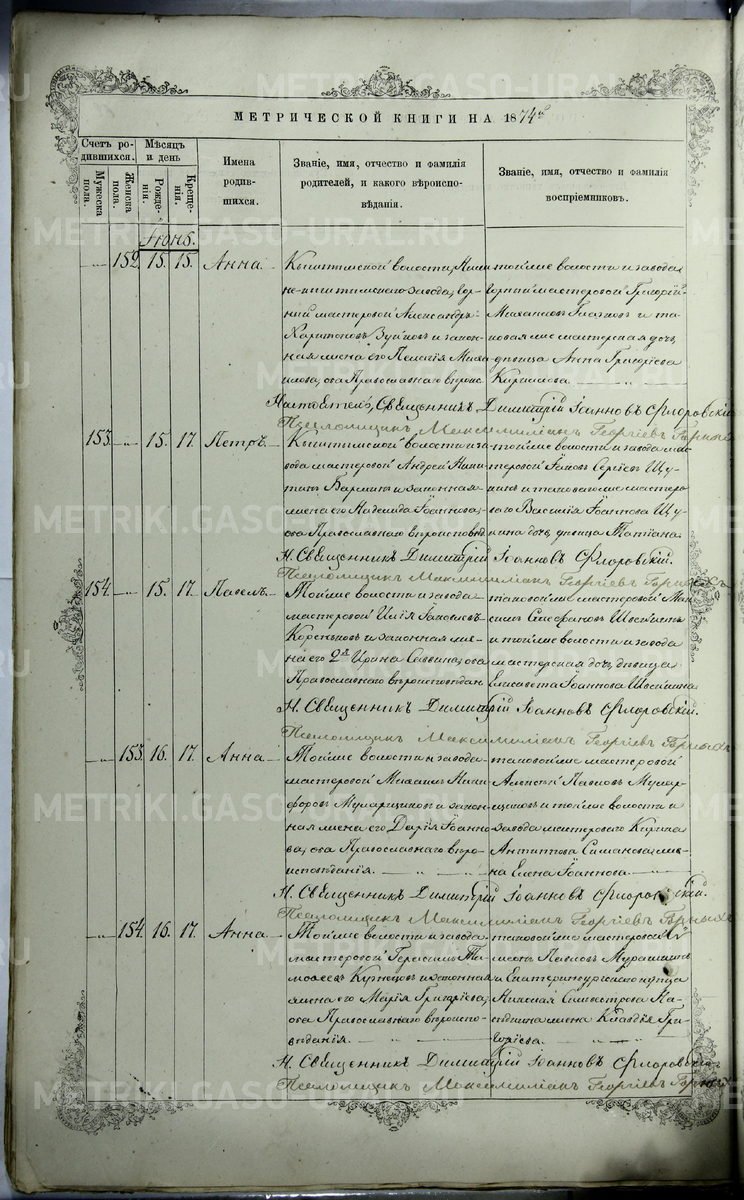 МЕТРИЧЕСКОЙ КНИГИ НА 1874й
Счетъ родившихся.
Мужеска пола.
Женска пола.
Мѣсяцъ и день
Рожденія.
Крещенія.
Имена родившихся.
Званіе, имя, отчество и фамилія родителей, и какого вѣроисповѣданія.
Званіе, имя, отчество и фамилія воспріемниковъ.
Іюнь.
152 15. 15. Анна.
Кыштымской волости, Нижне-кыштымскаго завода, горный мастеровой Александръ Харитоновъ Зуйковъ и законная жена его Пелагія Михайлова, оба Православнаго вѣроис
той же волости и завода горный мастеровой Григорій Михаиловъ Глазковъ и таковая же мастерская дочь дѣвица Анна Григорьева Кириллова.
Настоятель, Священникъ Димитрій Іоанновъ Флоровскій
Псаломщикъ Максимиліанъ Георгіевъ Горныхъ
153. 15. 17. Петръ.
Кыштымской волости и завода мастеровой Андрей Никитинъ и законная жена его Іоаннова, оба Православнаго вѣроисповѣд
той же волости и завода мастеровой Іаковъ Сергіевъ и таковаго же мастероваго Василія Іоаннова дочь, дѣвица Татіана.
Н. Священникъ Димитрій Іоанновъ Флоровскій.
Псаломщикъ Максимиліанъ Георгіевъ Горныхъ
154. 15. 17. Павелъ.
Той же волости и завода мастеровой Илія Іаковлевъ Кореньковъ и законная жена его 2я Ирина Саввина, оба Православнаго вѣроисповѣдан
таковой же мастеровой Максимъ Стефановъ и той же волости и завода мастерская дочь, дѣвица Елисавета Іоаннова
Н. Священникъ Димитрій Іоанновъ Флоровскій.
Псаломщикъ Максимиліанъ Георгіевъ Горныхъ
153. 16. 17. Анна
Той же волости и завода мастеровой Михаилъ Никифоровъ и законная жена его Дарія Іоаннова, оба Православнаго вѣроисповѣданія.
таковой же мастеровой Алексѣй Павловъ и той же волости и завода мастероваго Кирила Антипова Симанова жена Елена Іоаннова.
Н. Священникъ Димитрій Іоанновъ Флоровскій.
Псаломщикъ Максимиліанъ Георгіевъ Горныхъ
154. 16. 17. Анна
Той же волости и завода мастеровой Герасимъ Тимофеевъ Кузнецовъ и законная жена его Марія Григорьева, оба Православнаго вѣроисповѣданія.
таковой же мастеровой Павловъ и Екатеринбургскаго купца Николая Силвестрова жена Клавдія Григорьева.
Н. Священникъ Димитрій Іоанновъ Флоровскій
Псаломщикъ Максимиліанъ Георгіевъ Горныхъ
METRIKI.GASO-URAL.RU